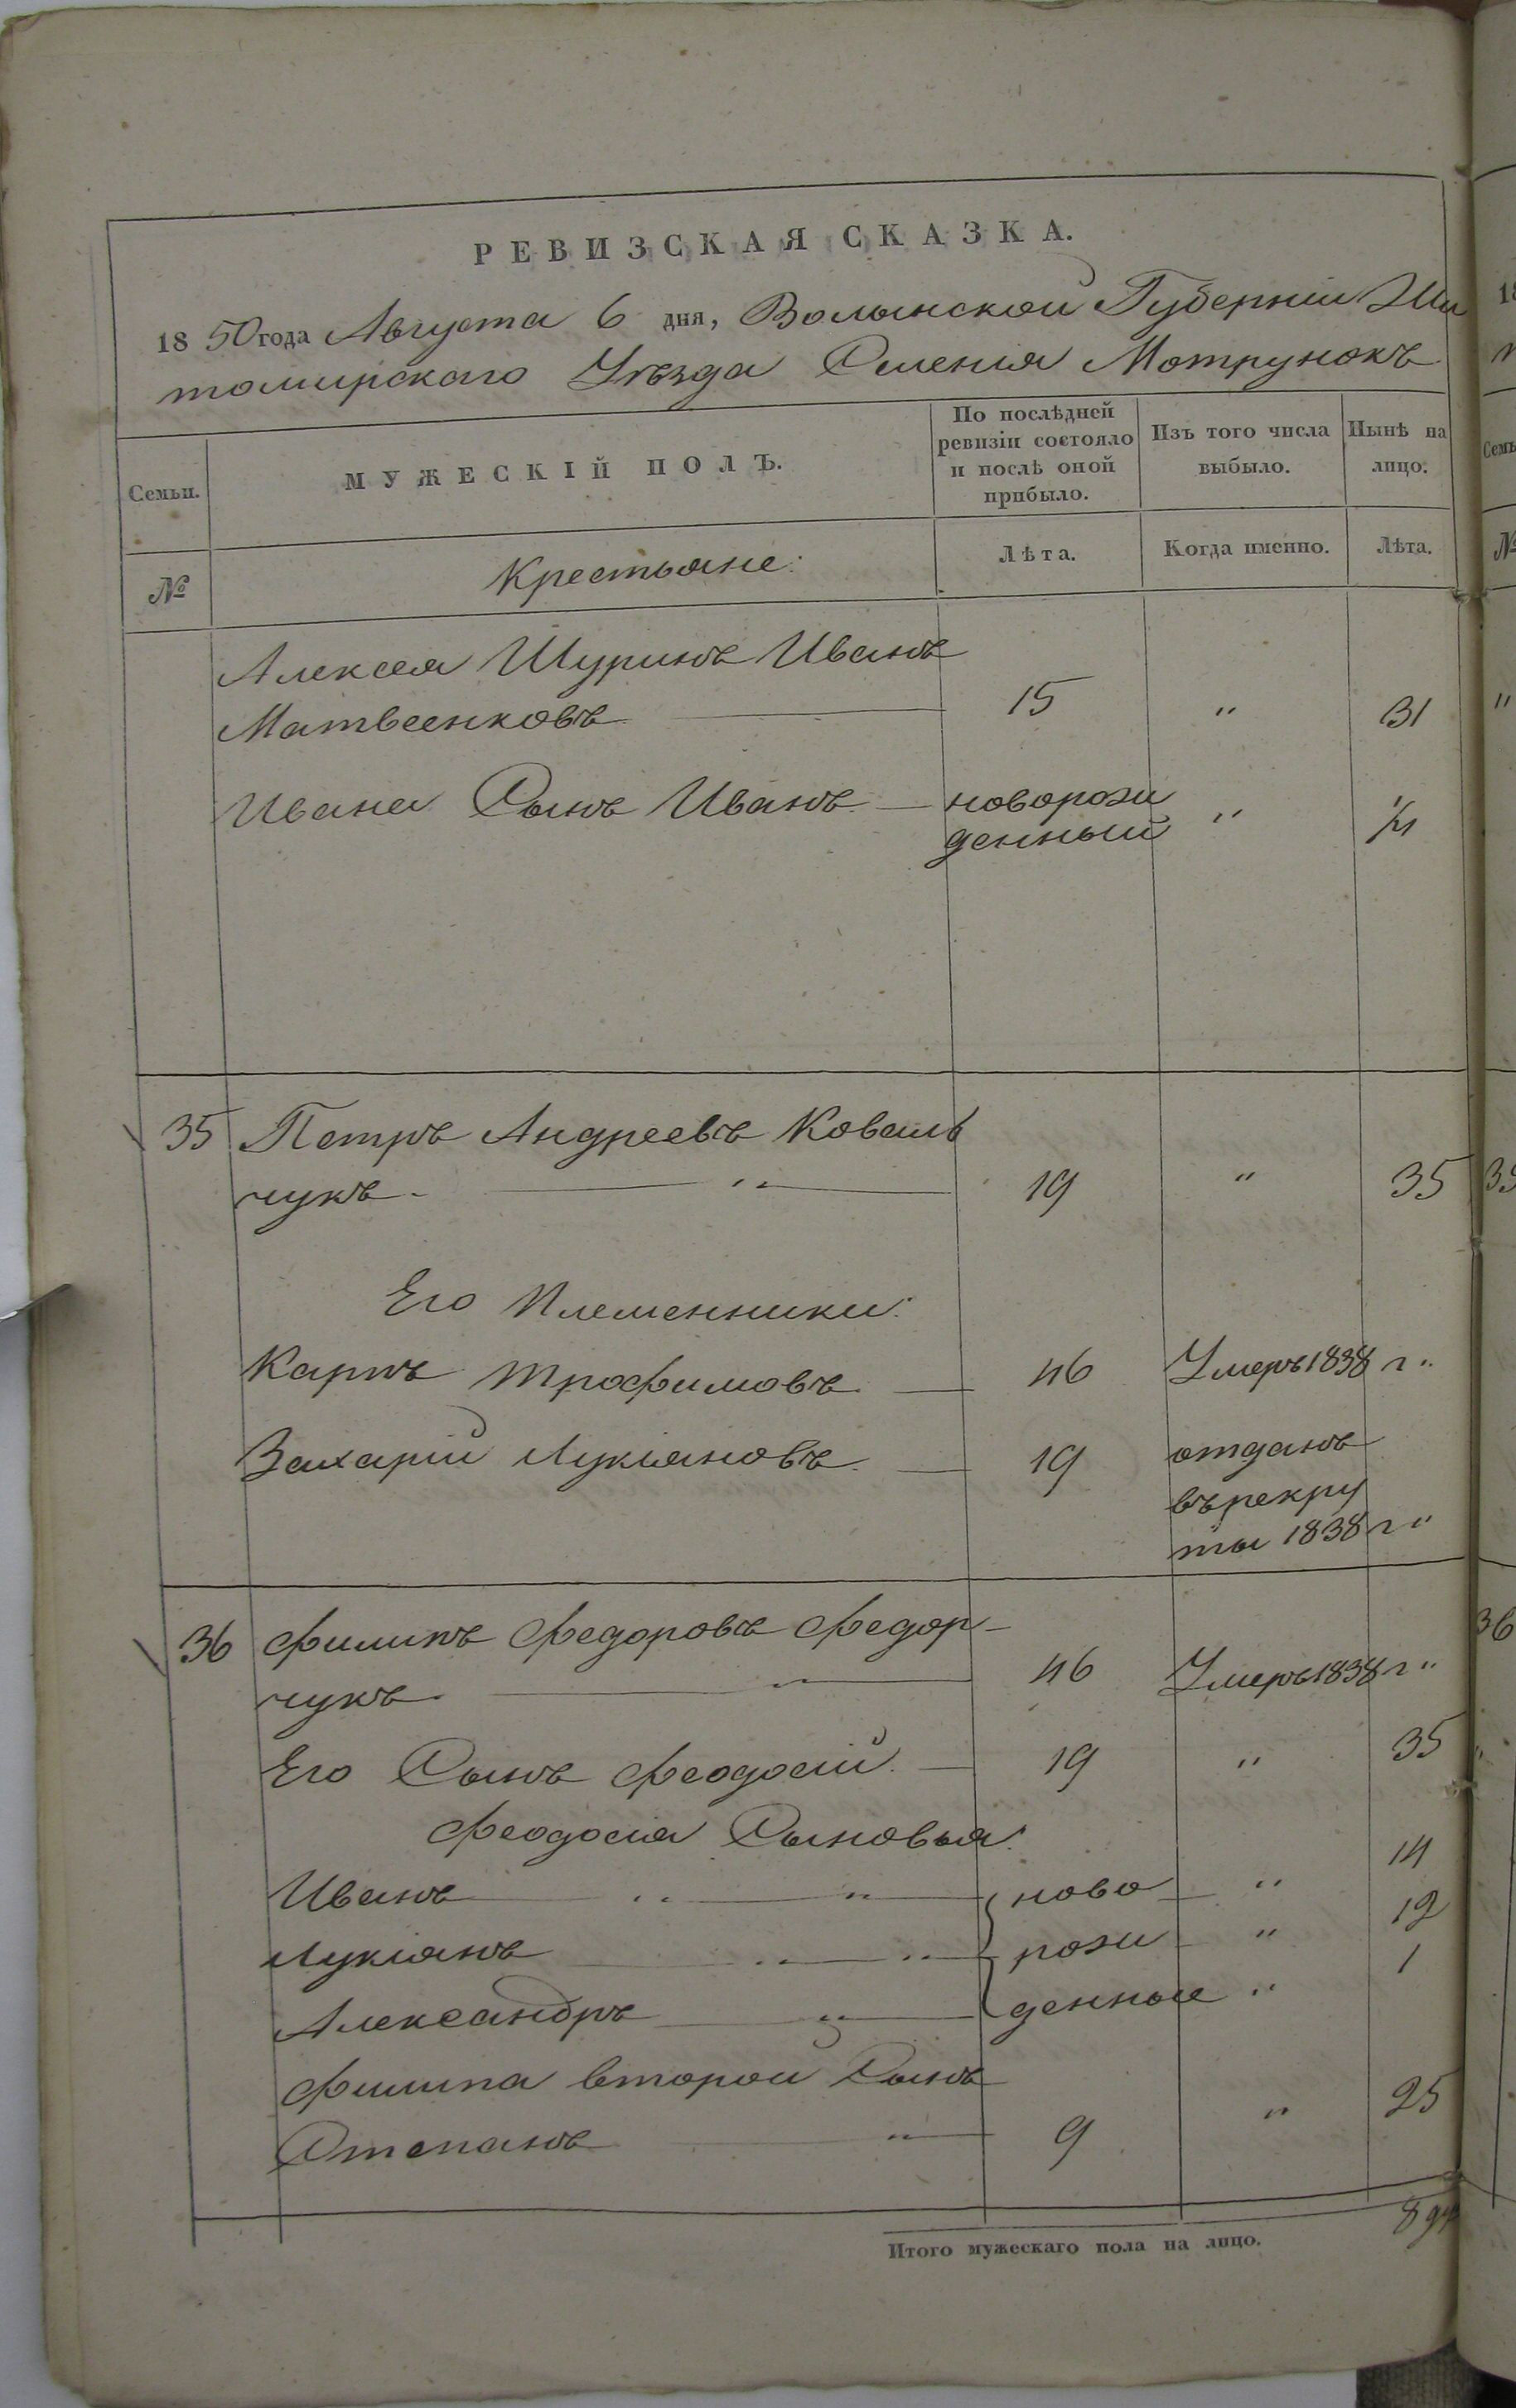 РЕВИЗСКАЯ СКАЗКА.
1850 года Августа 6 дня, Волынской Губерніи Жи
томирскаго Уѣзда Селенія Мотрунокъ
Семьи.
МУЖЕСКІЙ ПОЛЪ.
По послѣдней ревизіи состояло и послѣ оной прибыло.
Изъ того числа выбыло.
Нынѣ на лицо.
№
Крестьяне:
Лѣта.
Когда именно.
Лѣта.
Алексея Шуринъ Иванъ
Матвеенковъ 15 " 31
Ивана Сынъ Иванъ новорож
денный " ½
35 Петръ Андреевъ Коваль
чукъ. " 19 " 35
Его Племенники:
Карпъ Трофимовъ 46 Умеръ 1838 г "
Захарій Лукіановъ 19 отданъ
въ рекру
ты 1838 г "
36 Филипъ Федоровъ Федор-
чукъ. " 46 Умеръ 1838 г "
Его Сынъ Феодосій. 19 " 35
Феодосія Сыновья:
Иванъ " " ново " 14
Лукіанъ " " рож " 12
Александръ " денные " 1
Филипа второй Сынъ
Степанъ " 9 " 25
Итого мужескаго пола на лицо. 8